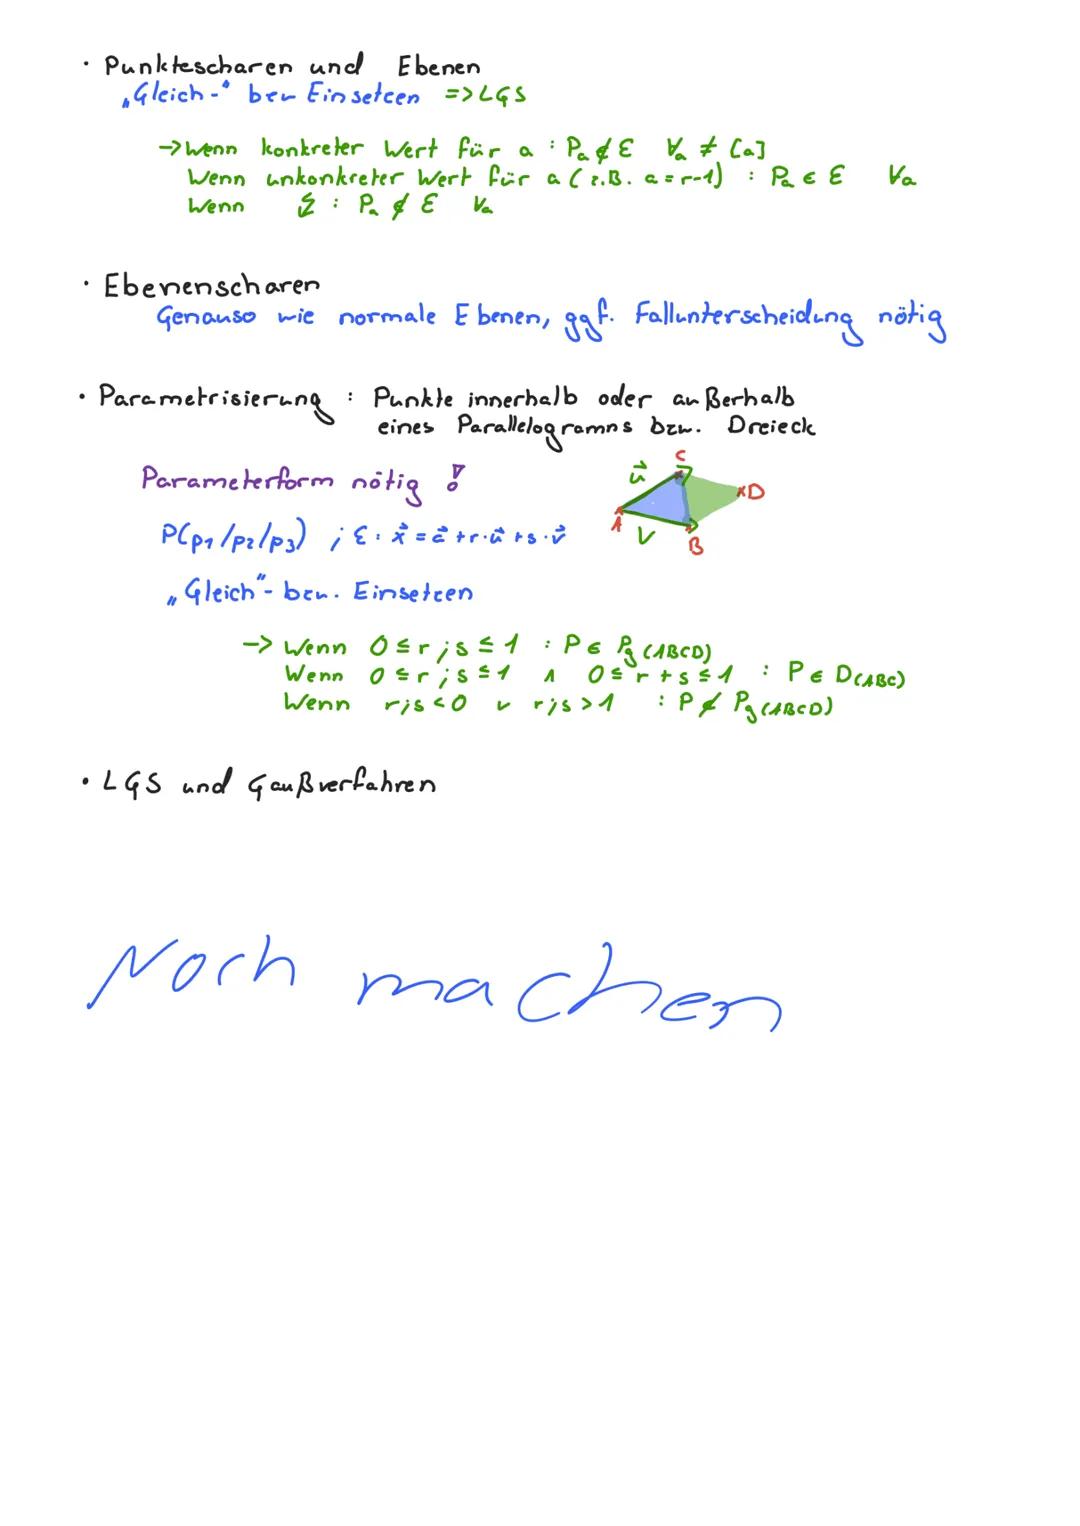 · Punktescharen und Ebenen
„Gleich-" bzw Einsetzen => LGS
-> Wenn konkreter Wert für a : Pₐ ∉ E ∀ₐ ≠ [a]
Wenn unkonkreter Wert für a (z.B. a = r-1) : Pₐ ∈ E ∀ₐ
Wenn ↯ : Pₐ ∉ E ∀ₐ
· Ebenenscharen
Genauso wie normale Ebenen, ggf. Fallunterscheidung nötig
· Parametrisierung : Punkte innerhalb oder außerhalb
eines Parallelogramms bzw. Dreieck
Parameterform nötig !
C
u⃗
D
A
V
B
P(p₁/p₂/p₃) ; E: x⃗ = a⃗ + r·u⃗ + s·v⃗
„Gleich"- bzw. Einsetzen
-> Wenn 0 ≤ r;s ≤ 1 : P ∈ Pg(ABCD)
Wenn 0 ≤ r;s ≤ 1 ∧ 0 ≤ r + s ≤ 1 : P ∈ D(ABC)
Wenn r;s < 0 ∨ r;s > 1 : P ∉ Pg(ABCD)
· LGS und Gaußverfahren
Noch machen